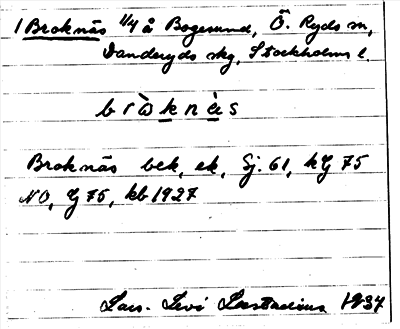 1 Broknäs 1/4 å Bogesund, Ö. Ryds sn,
Danderyds skg, Stockholms l.
b r ò k n ä̀ s
Broknäs bek, ek, Sj. 61, kG 75
NO, G 75, kb 1927
Lars-Levi Læstadius 1937